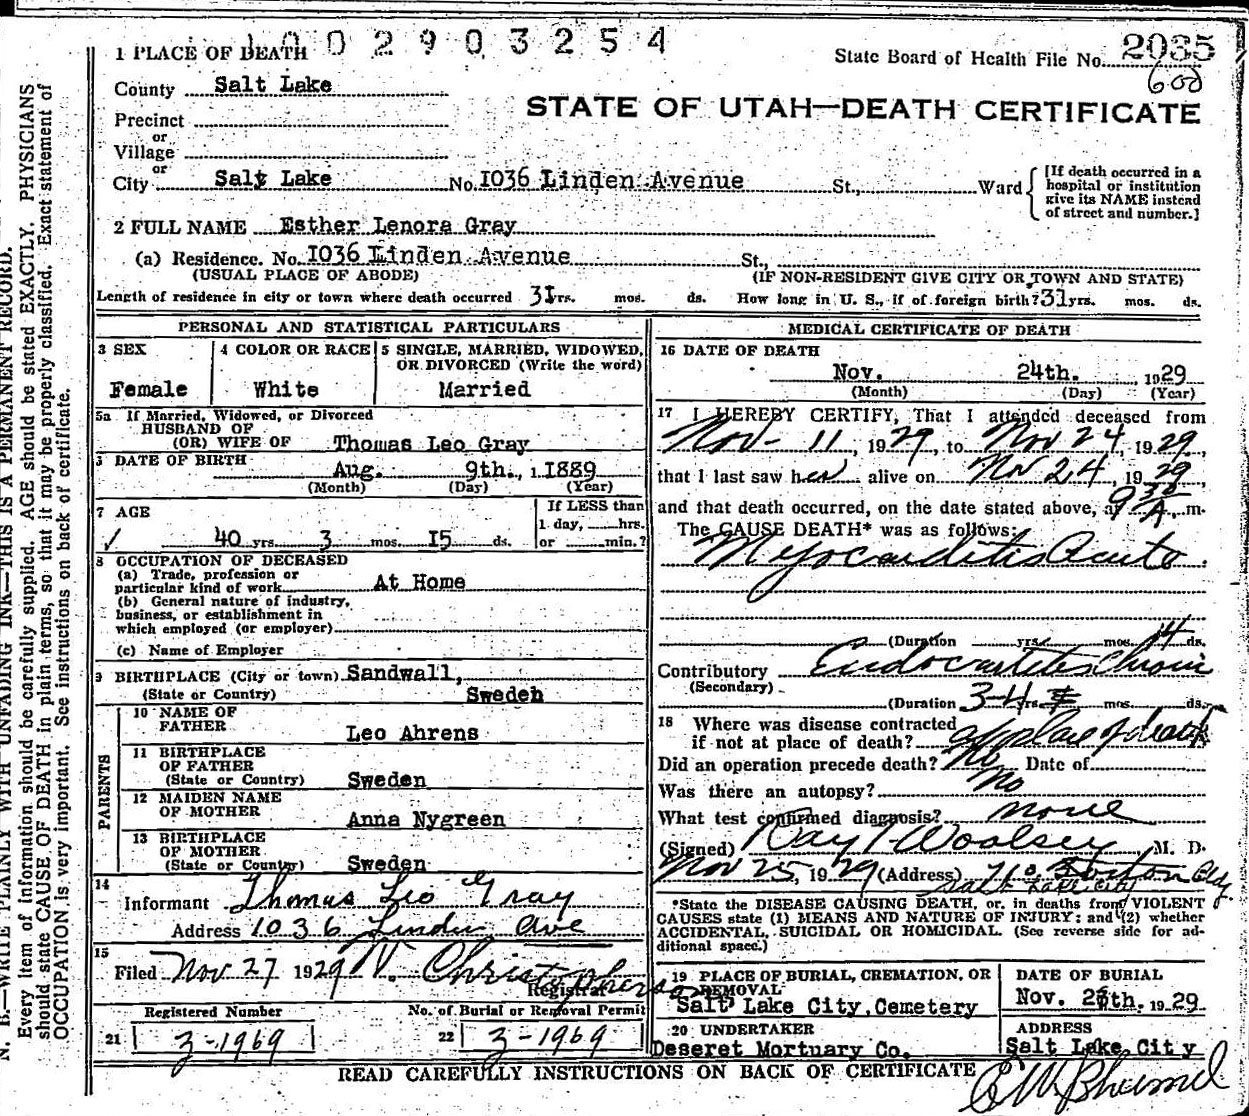 1 PLACE OF DEATH
1002903254
State Board of Health File No. 2035
600
County Salt Lake
STATE OF UTAH—DEATH CERTIFICATE
Precinct
or
Village
or
City Salt Lake No. 1036 Linden Avenue St., Ward
[If death occurred in a hospital or institution give its NAME instead of street and number.]
2 FULL NAME Esther Lenora Gray
(a) Residence. No. 1036 Linden Avenue St.,
(USUAL PLACE OF ABODE) (IF NON-RESIDENT GIVE CITY OR TOWN AND STATE)
Length of residence in city or town where death occurred 31 yrs. mos. ds. How long in U. S., if of foreign birth? 31 yrs. mos. ds.
PERSONAL AND STATISTICAL PARTICULARS
3 SEX
Female
4 COLOR OR RACE
White
5 SINGLE, MARRIED, WIDOWED, OR DIVORCED (Write the word)
Married
5a If Married, Widowed, or Divorced
HUSBAND OF
(OR) WIFE OF Thomas Leo Gray
DATE OF BIRTH Aug. 9th., 1889
(Month) (Day) (Year)
7 AGE
If LESS than
1 day, hrs.
or min.?
40 yrs. 3 mos. 15 ds.
8 OCCUPATION OF DECEASED
(a) Trade, profession or
particular kind of work At Home
(b) General nature of industry,
business, or establishment in
which employed (or employer)
(c) Name of Employer
9 BIRTHPLACE (City or town) Sandwall,
(State or Country) Sweden
PARENTS
10 NAME OF
FATHER Leo Ahrens
11 BIRTHPLACE
OF FATHER
(State or Country) Sweden
12 MAIDEN NAME
OF MOTHER Anna Nygreen
13 BIRTHPLACE
OF MOTHER
(State or Country) Sweden
14
Informant Thomas Leo Gray
Address 1036 Linden Ave
15
Filed Nov 27 1929 Christopherson
Registrar
Registered Number
21 3-1969
No. of Burial or Removal Permit
22 3-1969
MEDICAL CERTIFICATE OF DEATH
16 DATE OF DEATH
Nov. 24th. 1929
(Month) (Day) (Year)
17 I HEREBY CERTIFY, That I attended deceased from
Nov - 11, 1929, to Nov 24, 1929,
that I last saw her alive on Nov 24, 1929,
and that death occurred, on the date stated above, at 9 30 A. m.
The CAUSE DEATH* was as follows:
Myocarditis Acute
(Duration yrs. mos. 14 ds.
Contributory Endocarditis Chronic
(Secondary)
(Duration 3-4 yrs. mos. ds.
18 Where was disease contracted
if not at place of death? at place of death
Did an operation precede death? No Date of
Was there an autopsy? No
What test confirmed diagnosis? none
(Signed) Ray T Woolsey M. D.
Nov 25, 1929 (Address) Bldg
Salt Lake City
*State the DISEASE CAUSING DEATH, or, in deaths from VIOLENT
CAUSES state (1) MEANS AND NATURE OF INJURY; and (2) whether
ACCIDENTAL, SUICIDAL OR HOMICIDAL. (See reverse side for ad-
ditional space.)
19 PLACE OF BURIAL, CREMATION, OR
REMOVAL
Salt Lake City, Cemetery
DATE OF BURIAL
Nov. 1929
20 UNDERTAKER
Deseret Mortuary Co.
ADDRESS
Salt Lake City
READ CAREFULLY INSTRUCTIONS ON BACK OF CERTIFICATE
N. B.—WRITE PLAINLY WITH UNFADING INK—THIS IS A PERMANENT RECORD.
Every item of information should be carefully supplied. AGE should be stated EXACTLY. PHYSICIANS
should state CAUSE OF DEATH in plain terms, so that it may be properly classified. Exact statement of
OCCUPATION is very important. See instructions on back of certificate.